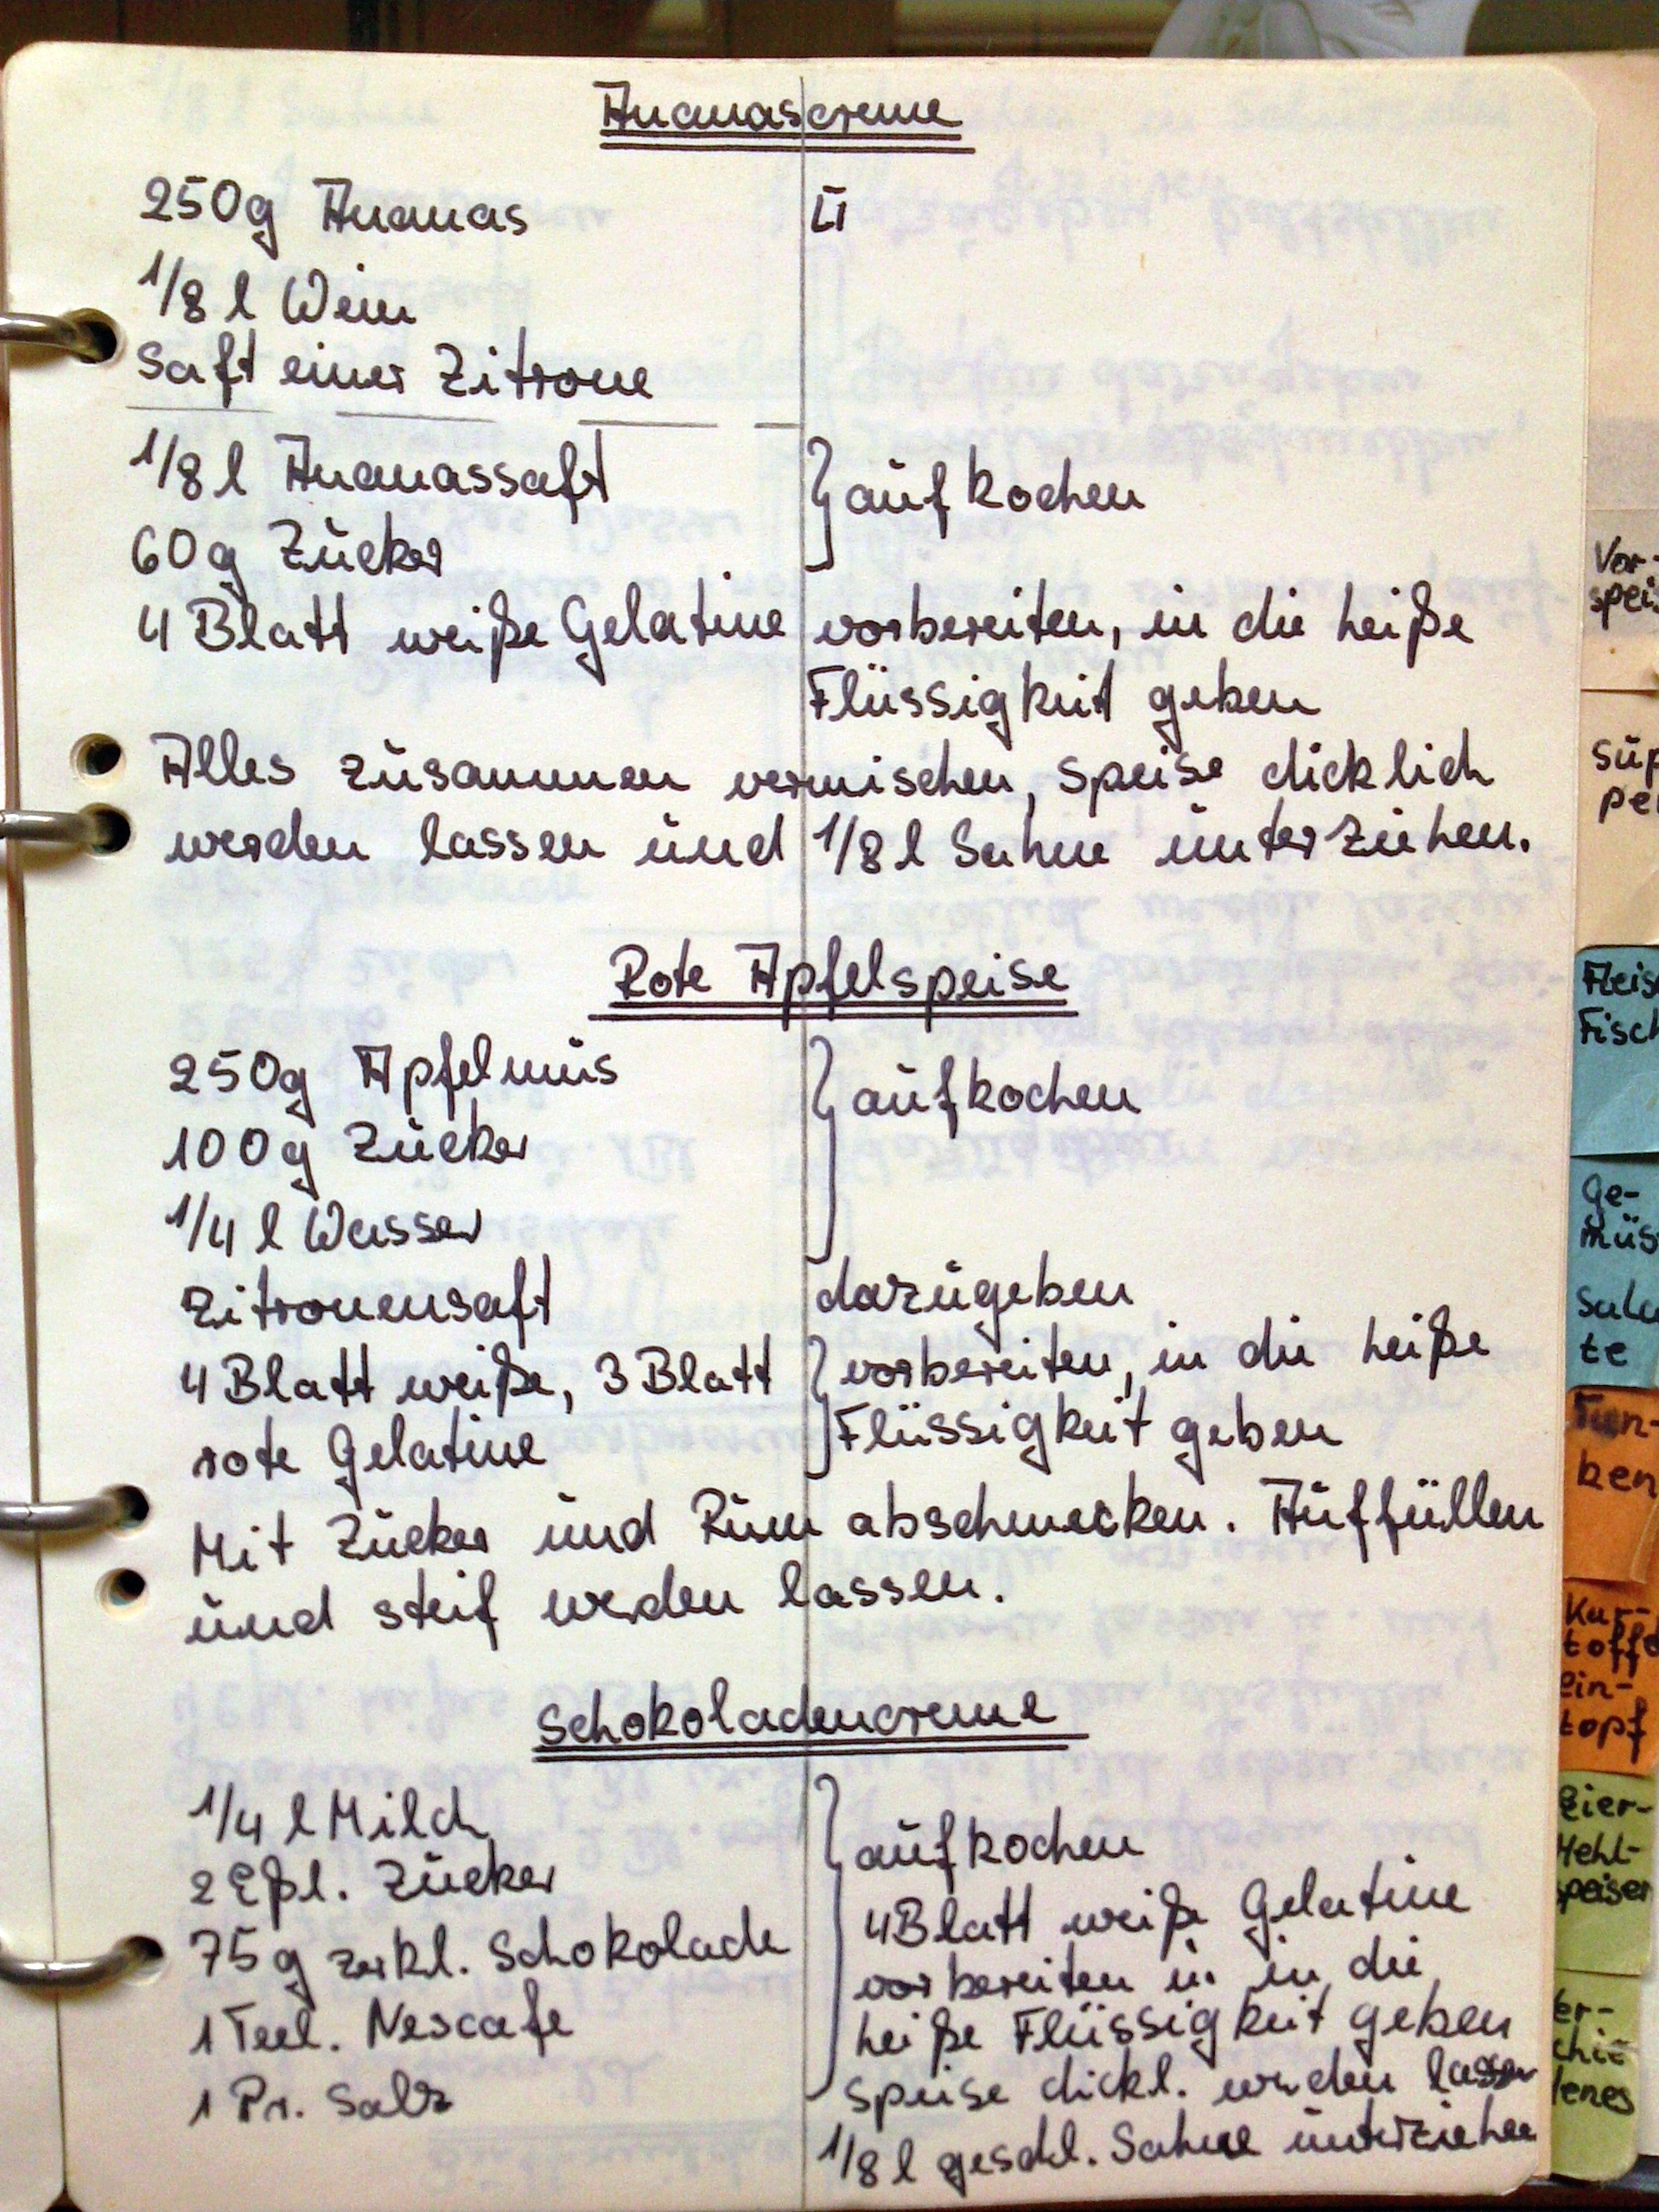 Ananascreme
250g Ananas
1/8 l Wein
Saft einer Zitrone
1/8 l Ananassaft } aufkochen
60g Zucker
4 Blatt weiße Gelatine vorbereiten, in die heiße
Flüssigkeit geben
Alles zusammen vermischen, Speise dicklich
werden lassen und 1/8 l Sahne unterziehen.
Rote Apfelspeise
250g Apfelmus } aufkochen
100g Zucker
1/4 l Wasser
Zitronensaft dazugeben
4 Blatt weiße, 3 Blatt } vorbereiten, in die heiße
rote Gelatine Flüssigkeit geben
Mit Zucker und Rum abschmecken. Auffüllen
und steif werden lassen.
Schokoladencreme
1/4 l Milch } aufkochen
2 Eßl. Zucker 4 Blatt weiße Gelatine
75g zerkl. Schokolade vorbereiten u. in die
1 Teel. Nescafe heiße Flüssigkeit geben
1 Pr. Salz Speise dickl. werden lassen
1/8 l geschl. Sahne unterziehen
Vor-
speis
Sup
pe
Fleis
Fisch
Ge-
müs
Sala
te
Tun-
ken
Kar-
toffe
Ein-
topf
Eier-
Mehl-
speisen
er-
chie
denes